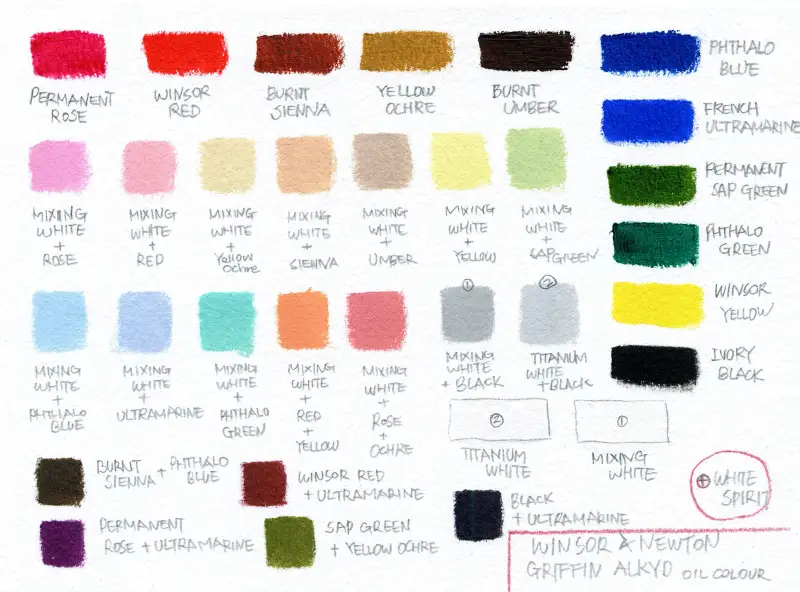 PERMANENT
ROSE
WINSOR
RED
BURNT
SIENNA
YELLOW
OCHRE
BURNT
UMBER
PHTHALO
BLUE
FRENCH
ULTRAMARINE
PERMANENT
SAP GREEN
PHTHALO
GREEN
WINSOR
YELLOW
IVORY
BLACK
MIXING
WHITE
+
ROSE
MIXING
WHITE
+
RED
MIXING
WHITE
+
Yellow
Ochre
MIXING
WHITE
+
SIENNA
MIXING
WHITE
+
UMBER
MIXING
WHITE
+
YELLOW
MIXING
WHITE
+
SAPGREEN
MIXING
WHITE
+
PHTHALO
BLUE
MIXING
WHITE
+
ULTRAMARINE
MIXING
WHITE
+
PHTHALO
GREEN
MIXING
WHITE
+
RED
+
YELLOW
MIXING
WHITE
+
ROSE
+
OCHRE
①
MIXING
WHITE
+ BLACK
②
TITANIUM
WHITE
+ BLACK
②
TITANIUM
WHITE
①
MIXING
WHITE
BURNT
SIENNA + PHTHALO
BLUE
WINSOR RED
+ ULTRAMARINE
PERMANENT
ROSE + ULTRAMARINE
SAP GREEN
+ YELLOW OCHRE
BLACK
+ ULTRAMARINE
⊕ WHITE
SPIRIT
WINSOR & NEWTON
GRIFFIN ALKYD OIL COLOUR